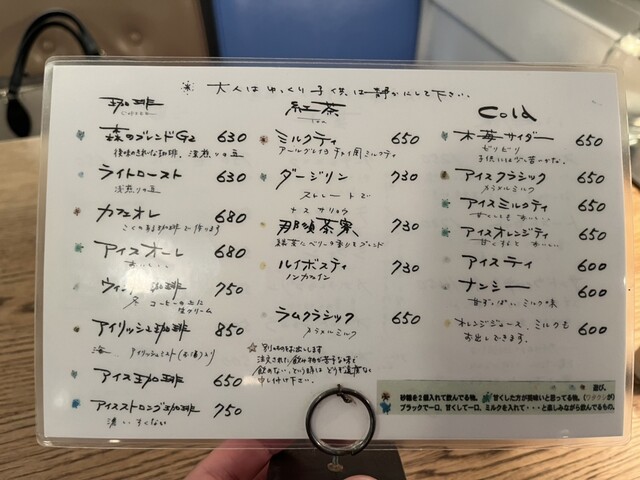 大人はゆっくり 子供は静かにして下さい。
珈琲
森のブレンドG2 630
後味のきれいな珈琲、深煎りの豆
ライトロースト 630
浅煎りの豆
カフェオレ 680
こくのある珈琲で作ります
アイスオーレ 680
ウィンナ珈琲 750
冬 コーヒーの上に
生クリーム
アイリッシュ珈琲 850
アイス珈琲 650
アイスストロング珈琲 750
濃い すくない
紅茶
Tea
ミルクティ 650
アールグレイ ミルクティ
ダージリン 730
ストレートで
那須茶寮 730
紅茶にベリーの香りをブレンド
ルイボスティ 730
ノンカフェイン
ラムクラシック 650
カラメルミルク
☆別のものをお出しします
注文された飲み物が苦手な味で
飲めない、という時は どうぞ遠慮なく
申し付け下さい。
Cold
木苺サイダー 650
ピリピリ
アイスクラシック 650
カラメルミルク
アイスミルクティ 650
アイスオレンジティ 650
アイスティ 600
ナンシー 600
甘ずっぱい、ミルク味
オレンジジュース、ミルクも 600
お出しできます。
遊び。
砂糖を2個入れて飲んでる物。甘くした方が美味いと思ってる物。(ワタクシが)
ブラックで一口、甘くして一口、ミルクを入れて・・・と楽しみながら飲んでるもの。